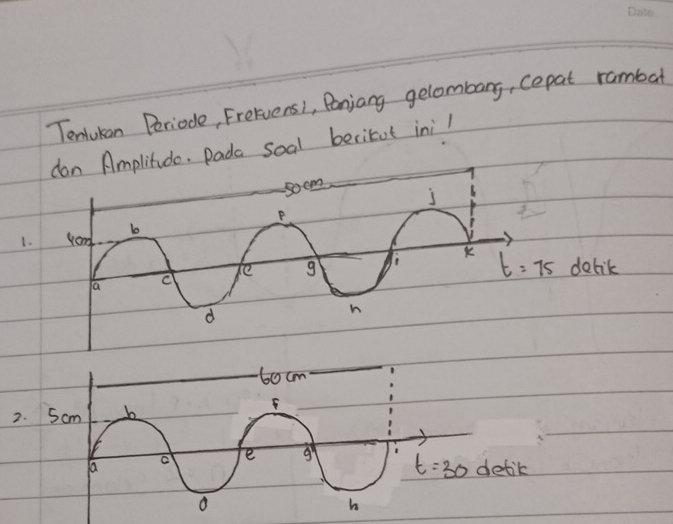 Date
Tentukan Periode, Frekuensi, Panjang gelombang, Cepat rambat
dan Amplitudo. pada soal berikut ini!
50cm
1. 4cm b f j
a c e g i k
t = 75 detik
d h
60 cm
2. 5cm b f
a c e g i
t = 30 detik
d h